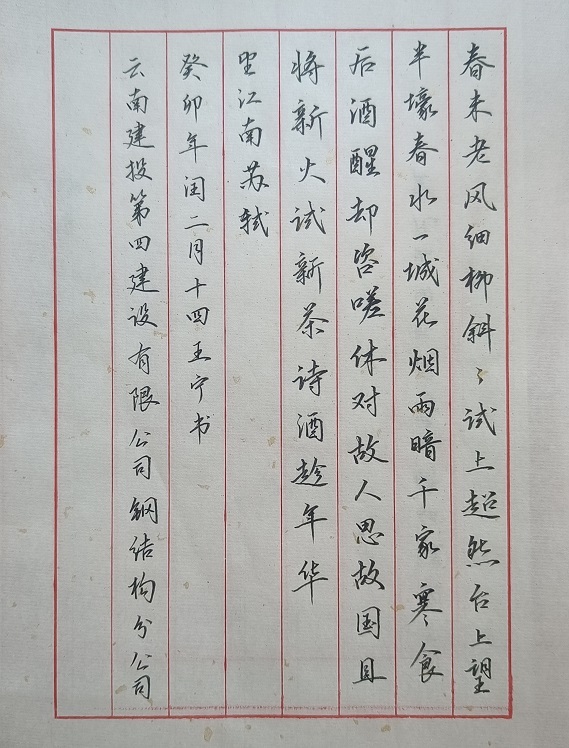 春未老风细柳斜〻试上超然台上望
半壕春水一城花烟雨暗千家寒食
后酒醒却咨嗟休对故人思故国且
将新火试新茶诗酒趁年华
望江南苏轼
癸卯年闰二月十四王宁书
云南建投第四建设有限公司钢结构分公司